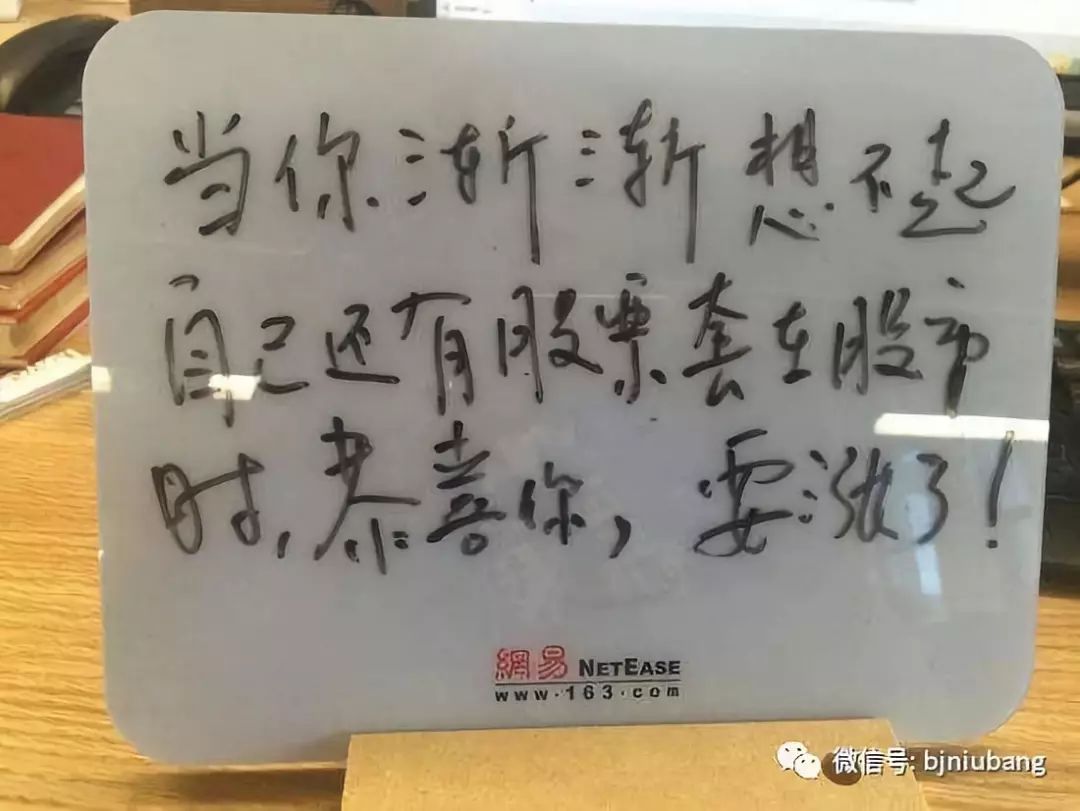 当你渐渐想不起
自己还有股票套在股市
时,恭喜你,要涨了!
網易 NETEASE
www.163.com
微信号: bjniubang